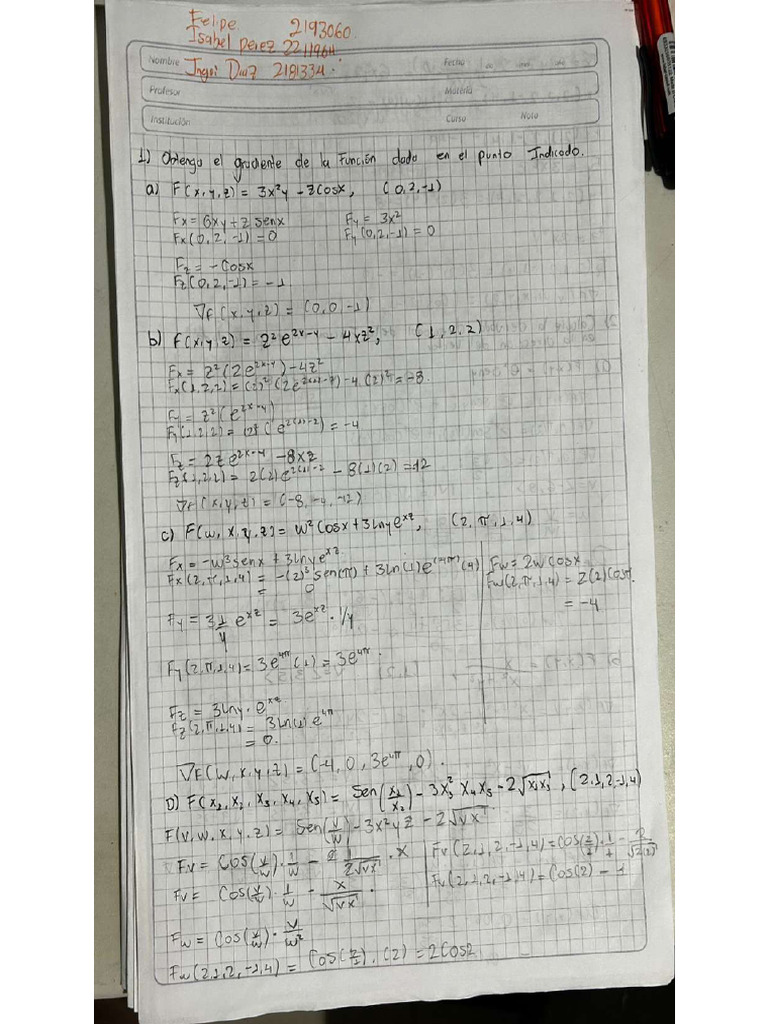 Felipe 2193060
Isabel Perez 2211964
Nombre Ingri Diaz 2181334 Fecha
Profesor Materia
Institución Curso Nota
1) Obtenga el gradiente de la Función dada en el punto Indicado.
a) F(x,y,z) = 3x²y - zcosx, (0,2,-1)
Fx = 6xy + z senx Fy = 3x²
Fx(0,2,-1) = 0 Fy(0,2,-1) = 0
Fz = -Cosx
Fz(0,2,-1) = -1
∇F(x,y,z) = (0,0 -1)
b) F(x,y,z) = z²e^(2x-y) - 4xz², (1,2,2)
Fx = z²(2e^(2x-y)) - 4z²
Fx(1,2,2) = (2)²(2e^(2(1)-2)) - 4(2)² = -8.
Fy = z²(e^(2x-y))
Fy(1,2,2) = (e^(2(1)-2)) = -4
Fz = 2ze^(2x-y) - 8xz
Fz(1,2,2) = 2(2)e^(2(1)-2) - 8(1)(2) = 12
∇F(x,y,z) = (-8,-4,-12)
c) F(w,x,y,z) = w²Cosx + 3lnye^(xz), (2,π,1,4)
Fx = -w²senx + 3lnye^(xz) Fw = 2wCosx
Fx(2,π,1,4) = -(2)²Sen(π) + 3ln(1)e^(4π)(4) Fw(2,π,1,4) = 2(2)Cosπ.
= 0 = -4
Fy = 3 1/y e^(xz) = 3e^(xz) · 1/y
Fy(2,π,1,4) = 3e^(4π)(1) = 3e^(4π).
Fz = 3lny·e^(xz)
Fz(2,π,1,4) = 3ln(1)e^(4π)
= 0.
∇F(w,x,y,z) = (-4,0,3e^(4π),0).
D) F(x₁,x₂,x₃,x₄,x₅) = Sen(x₁/x₂) - 3x₃²x₄x₅ - 2√(x₁x₃), (2,1,2,-1,4)
F(v,w,x,y,z) = Sen(v/w) - 3x²yz - 2√(vx)
Fv = COS(v/w)·1/w - 2 1/(2√(vx))·x Fv(2,1,2,-1,4) = COS(2/1)·1/1 - 2/√(2(2))
Fv = Cos(v/w)·1/w - x/√(vx). Fv(2,1,2,-1,4) = Cos(2) - 1
Fw = Cos(v/w)·v/w²
Fw(2,1,2,-1,4) = Cos(2/1)·(2) = 2Cos2.